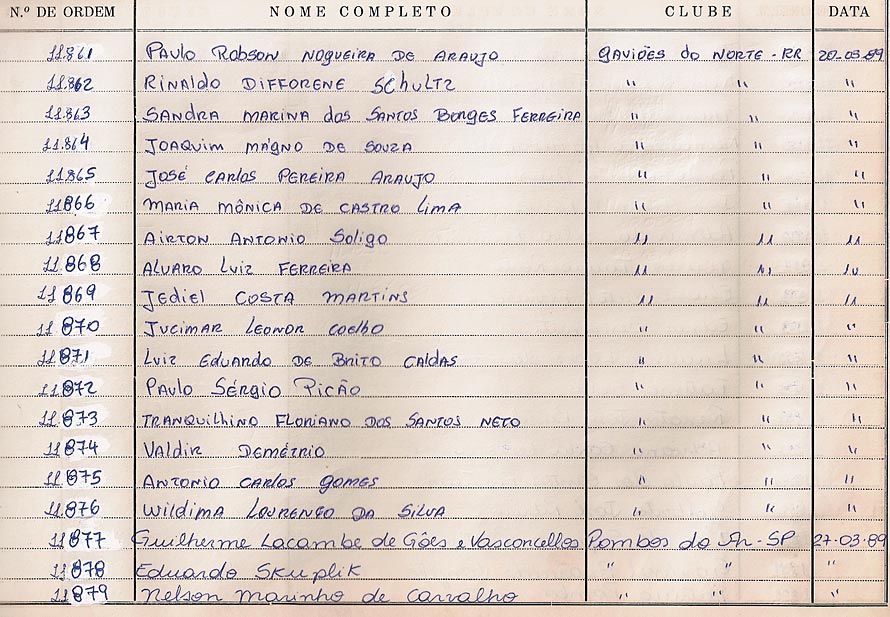 N.º DE ORDEM NOME COMPLETO CLUBE DATA
11.861 PAULO ROBSON NOGUEIRA DE ARAUJO GAVIÕES do NORTE - RR 20-03-89
11.862 RINALDO DIFFORENE SChULTZ " " "
11.863 SANDRA MARINA dos SANTOS BORGES FERREIRA " " "
11.864 JOAQUIM MÁGNO DE SOUZA " " "
11.865 JOSÉ CARLOS PEREIRA ARAUJO " " "
11866 MARIA MÔNICA DE CASTRO LIMA " " "
11.867 AIRTON ANTONIO SOLIGO " " "
11.868 ALVARO LUIZ FERREIRA " " "
11 869 JEDIEL COSTA MARTINS " " "
11 870 JUCIMAR LEONOR COELHO " " "
11.871 LUIZ EDUARDO DE BRITO CALDAS " " "
11 872 PAULO SÉRGIO PICÃO " " "
11.873 TRANQUILHINO FLORIANO DOS SANTOS NETO " " "
11 874 VALDIR DEMÉTRIO " " "
11.875 ANTONIO CARLOS GOMES " " "
11.876 WILDIMA LOURENÇO DA SILVA " " "
11 877 Guilherme Lacombe de Góes e Vasconcellos Pombos do Ar - SP 27-03-89
11 878 Eduardo Skuplik " " "
11 879 Nelson Marinho de Carvalho " " "